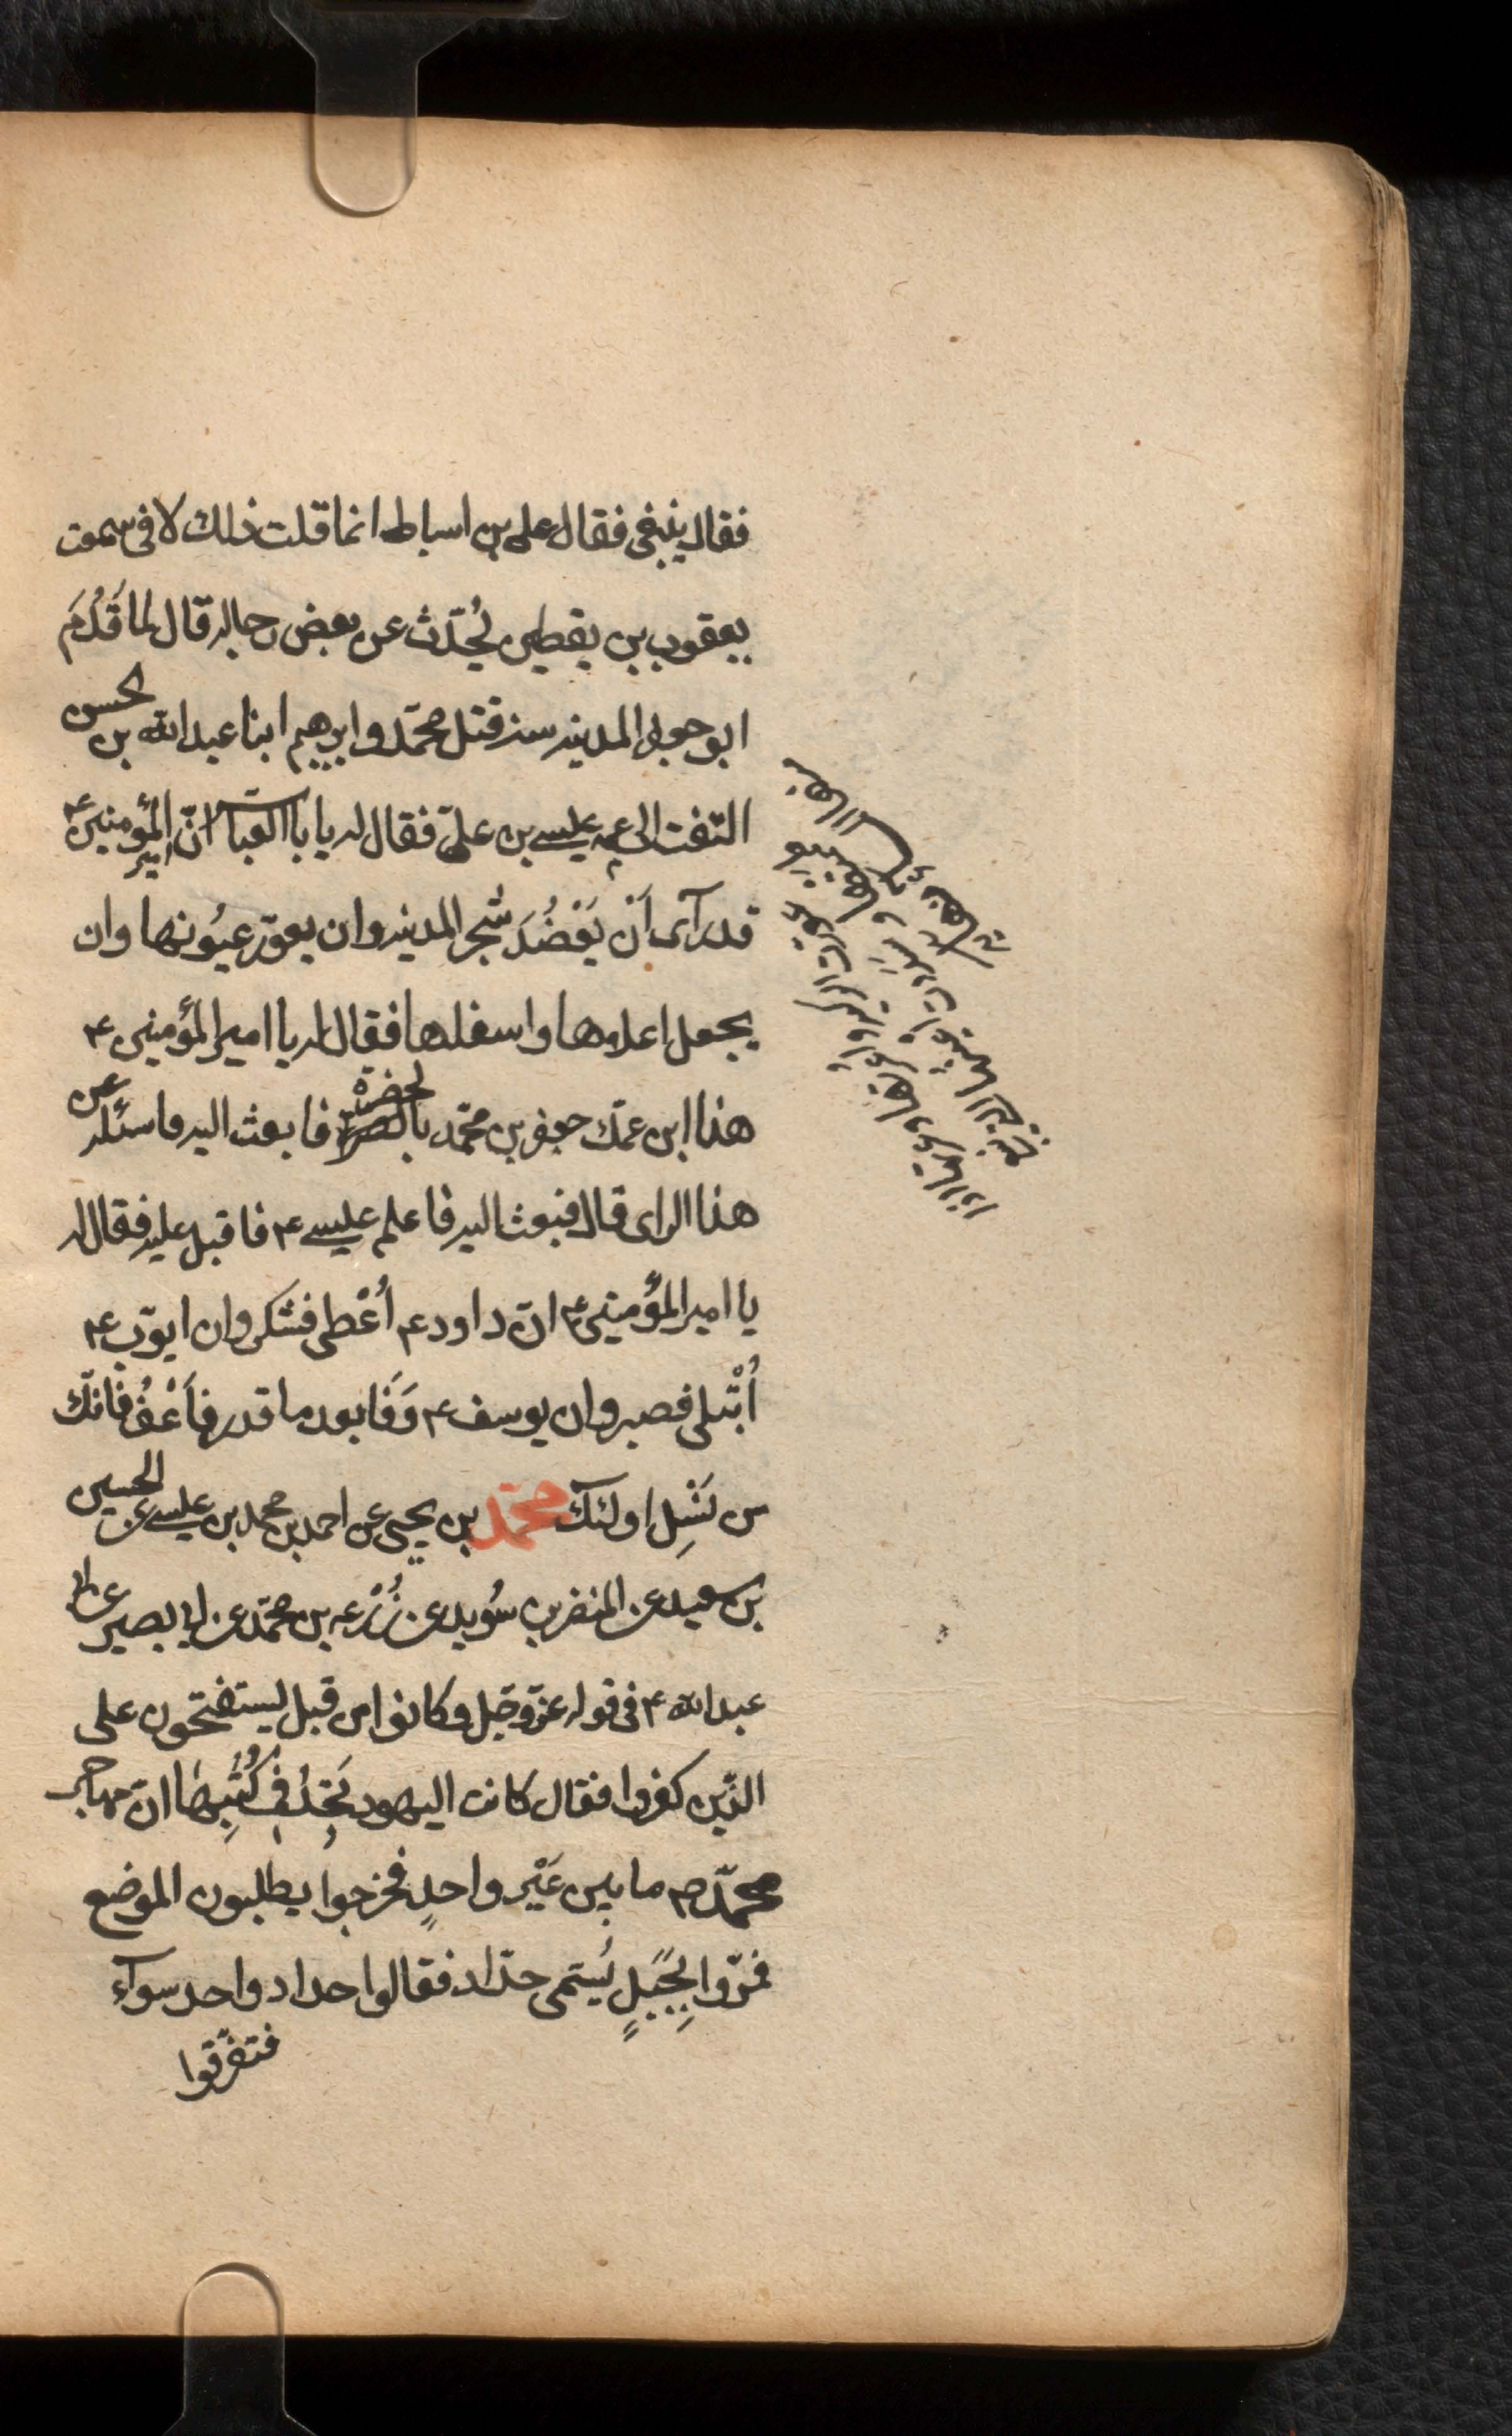 فقال ينبغى فقال على بن اسباط انما قلت ذلك لانى سمعت
يعقوب بن يقطين يُحدّث عن بعض رجاله قال لما قَدُمَ
ابو جعفر المدينه سنه قتل محمّد و ابرهيم ابنا عبد الله بن الحسن
التفت الى عمه عيسى بن علىّ فقال له يا ابا العباس انّ امير المؤمنين ٤
قد رآى اَنْ يَعْضُدَ شجر المدينه وان يعوّر عيُونها وان
يجعل اعلاها واسفلها فقال له يا امير المؤمنين ٤
هذا ابن عمّك جعفر بن محمّد بالحضرة فابعث اليه فاسئله عن
هذا الراى قال فبعث اليه فاعلم عيسى ٤ فاقبل عليه فقال له
يا امير المؤمنين ٤ انّ داود ٤ اُعْطى فشكر وان ايوّب ٤
اُبْتلى فصبر وان يوسف ٤ وَفَا بعد ما قدر فاَعْفُ فانّك
من نَسْلِ اولئك محمّد بن يحيى عن احمد بن محمد بن عيسى عن الحسين
بن سعيد عن النضر بن سُويد عن زُرْعه بن محمّد عن ابى بصير عن ابى
عبد الله ٤ فى قوله عزّ وجّل وكانوا من قبل يستفتحون على
الذّين كفروا فقال كانت اليهود تَجِدُ فى كُتُبِهٰا انّ مهاجر
محمّد ص ما بين عَيْر واحدٍ فخرجوا يطلبون الموضع
فمرّوا بِجَبَلٍ يُسَمّى حدّاد فقالوا حداد واحد سوآء
فتفرّقوا